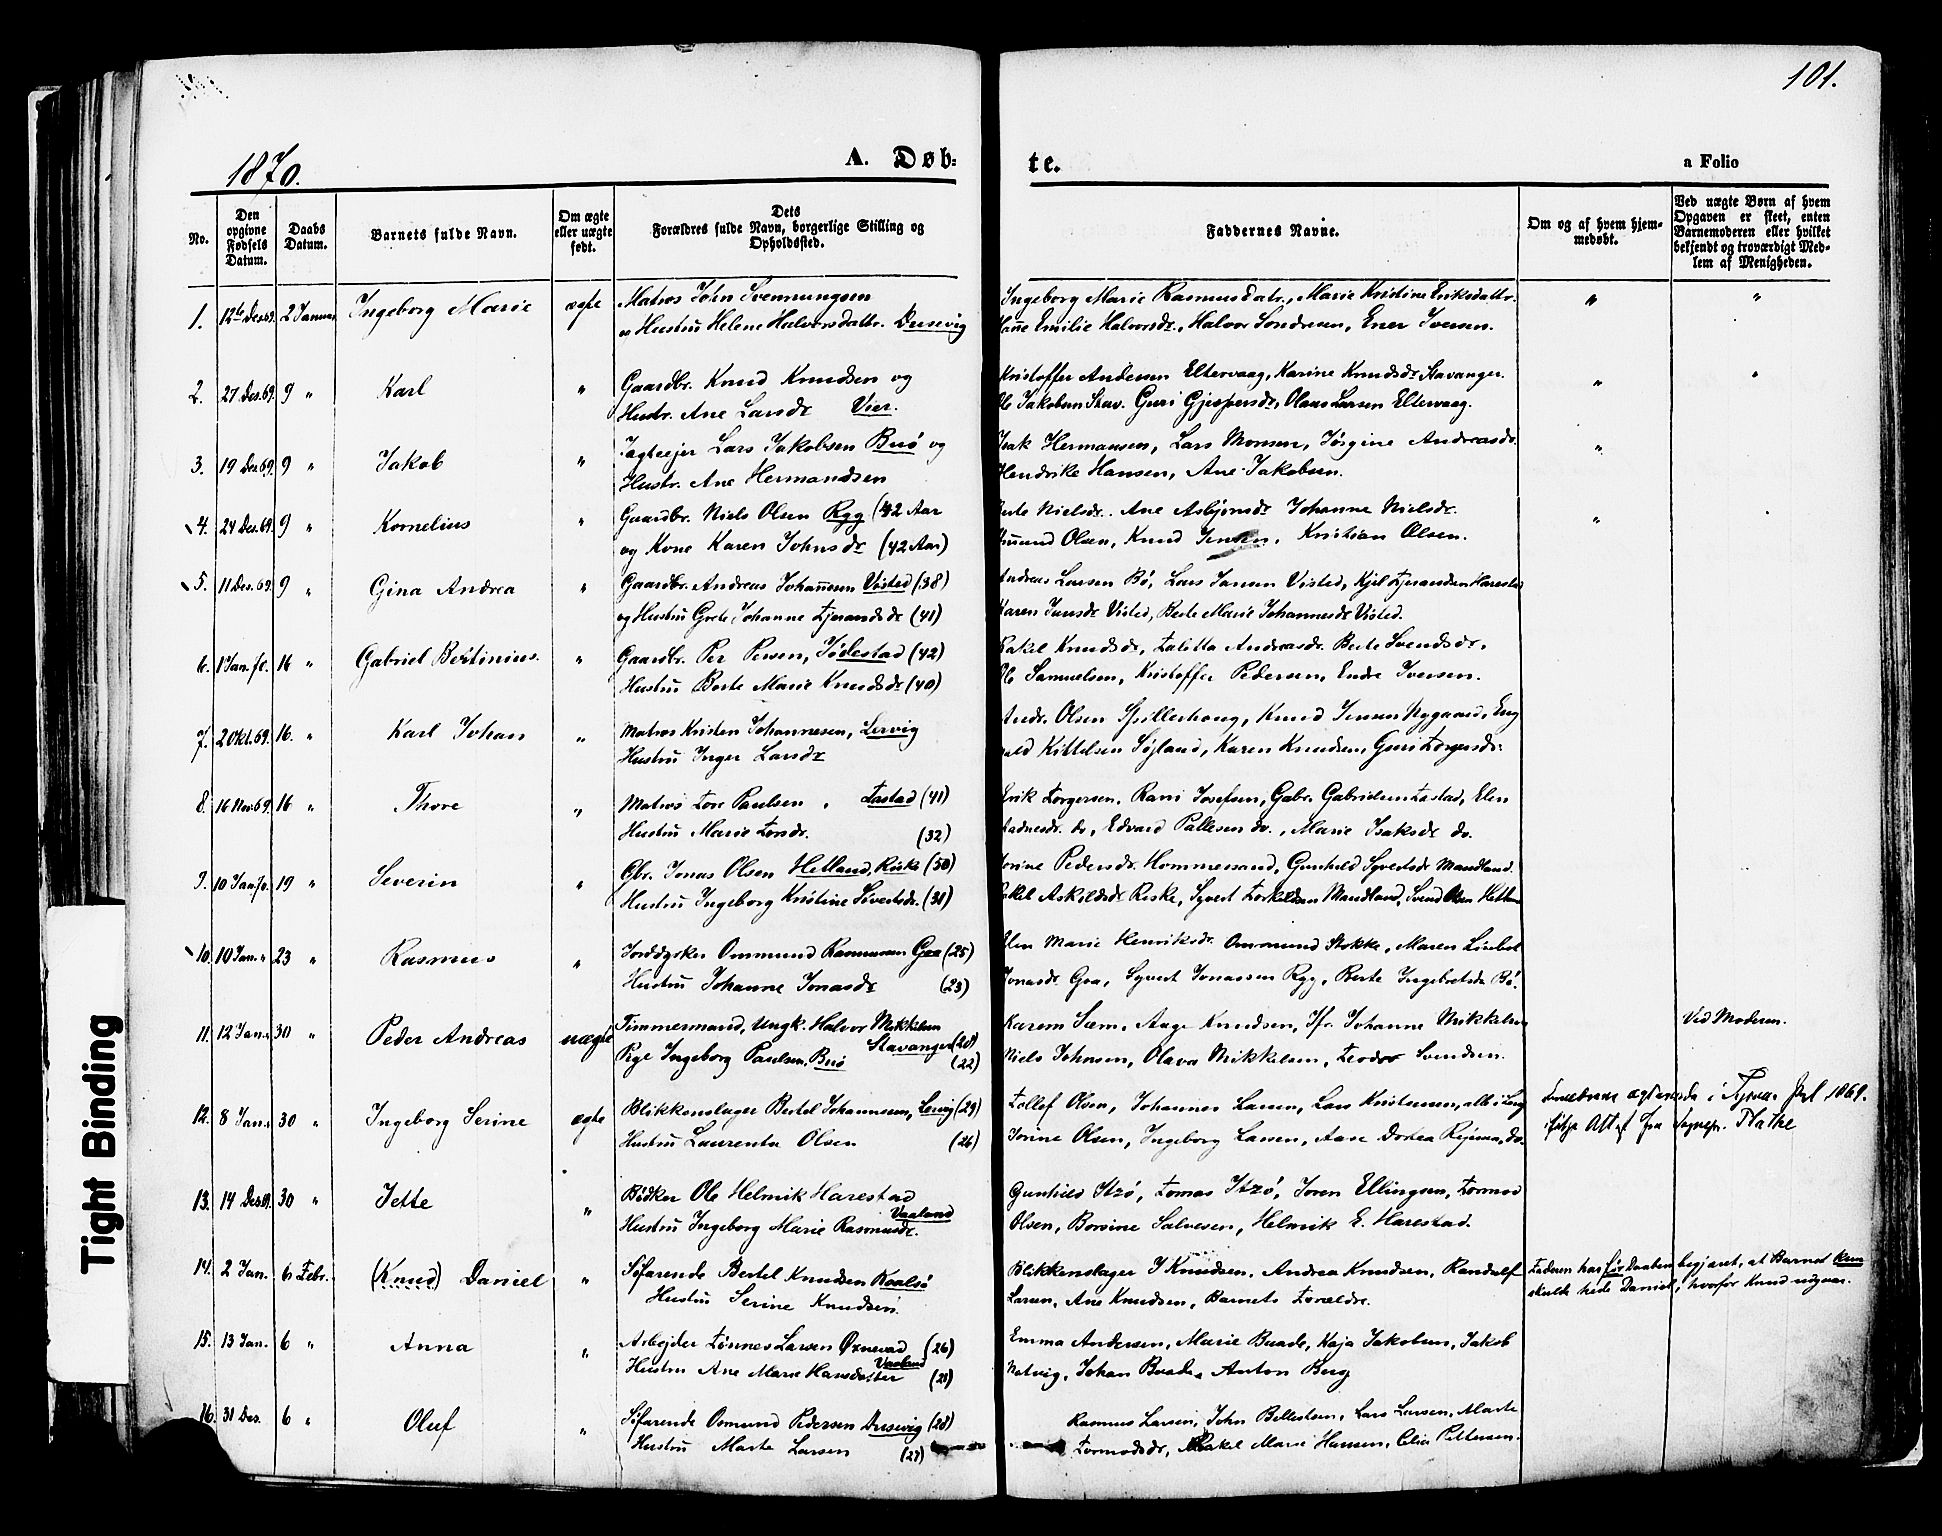 101.
1870.
A. Døb-
te.
a Folio
No.
Den opgivne Fødsels Datum.
Daabs Datum.
Barnets fulde Navn.
Om ægte eller uægte født.
Dets Forældres fulde Navn, borgerlige Stilling og Opholdssted.
Faddernes Navne.
Om og af hvem hjem-
medøbt.
Ved uægte Børn af hvem
Opgaven er skeet, enten
Barnemoderen eller hvilket
bekjendt og troværdigt Med-
lem af Menigheden.
1. 12te Des 69. 2 Januar Ingeborg Marie ægte Matros John Svennungsen
og Hustru Helene Halvorsdattr. Dusevig
Ingeborg Marie Rasmusdatr., Marie Kristine Eriksdattr.
Emilie Halvorsdr., Halvor Sondresen, Ener Iversen.
2. 27 Des. 69. 9 " Karl " Gaardbr. Knud Knudsen og
Hustr. Ane Larsdr Vier.
Kristoffer Andersen Eltervaag, Karine Knudsdr Stavanger.
Ole Jakobsen Stav. Guri Gjespersdr, Olaus Larsen Eltervaag.
3. 19 Des 69. 9 " Jakob " Jagteejer Lars Jakobsen Buø og
Hustr. Ane Hermandsen
Isak Hermansen, Lars Monsen, Jørgine Andreasdr.
Hendrike Hansen, Ane Jakobsen.
4. 24 Des. 69. 9 " Kornelius " Gaardbr. Niels Olsen Ryg (42 Aar
og Kone Karen Johnsdr (42 Aar)
Berte Nielsdr. Ane Asbjørnsdr Johanne Nielsdr.
Olsen, Knud Jensen, Kristian Olsen.
5. 11 Des. 69. 9 " Gina Andrea " Gaardbr. Andreas Johannesen Visted (38)
og Hustru Grete Johanne Tjerandsdr (41)
Andreas Larsen Bø, Lars Jansen Visted, Kjel Tjerandsen Harestad
Karen Jansdr Visted, Berte Marie Johannesdr Visted.
6. 1 Jan. 70. 16 " Gabriel Bertinius. " Gaardbr. Per Persen, Jødestad (42)
Hustru Berte Marie Knudsdr (40)
Rakel Knudsdr, Talitta Andreasdr. Berte Svendsdr.
Ole Samuelsen, Kristoffer Pedersen, Endre Iversen.
7. 2 Okt. 69. 16. " Karl Johan " Matros Kristen Johannesen, Lervig
Hustru Inger Larsdr
Andr. Olsen Spillerhoug, Knud Jensen Nygaard, Eng
Kittelsen Søgland, Karen Knudsen, Guri Torgersdr.
8. 16 Nov. 69. 16 " Thore " Matros Tore Paulsen, Tastad (41)
Hustru Marie Torsdr. (32)
Erik Torgersen, Rani Josefsen, Gabr. Gabrielsen Tastad, Elen
do, Edvard Pallesen do., Marie Isaksdr do.
9. 10 Jan 70. 19 " Severin " Gbr. Jonas Olsen Hetland, Riske (50)
Hustru Ingeborg Kristine Sivertsdr. (31)
Pedersdr. Hommersand, Gunhild Syvertsdr Mandland.
Rakel Askildsdr Riske, Syvert Torkeldsen Mandland, Svend Olsen Hetland
10. 10 Jan. " 23 " Rasmus " Jorddyrker Ommund Rasmussen Goa (25)
Hustru Johanne Jonasdr (23)
Elen Marie Henriksdr. Ommund Stokke, Maren Lisbet
Jonasdr Goa, Syvert Jonassen Ryg, Berte Ingebretsdr Bø.
11. 12 Jan. " 30 " Peder Andreas uægte Timmermand, Ungk. Halvor Mikkelsen
Stavanger (28)
Pge Ingeborg Paulsen. Buø (22)
Karen Sæm, Aage Knudsen, Jfr. Johanne Mikkelsen
Niels Johnsen, Olava Mikkelsen, Teodor Svendsen.
Ved Moderen.
12. 8 Jan. " 30 " Ingeborg Serine ægte Blikkenslager Bertel Johannesen, Lervig (29)
Hustru Laurentse Olsen (26)
Tollef Olsen, Johannes Larsen, Lars Kristensen, alle i Lerv.
Jorine Olsen, Ingeborg Larsen, Aase Dortea Rejersen, do.
i følge Attest fra Sognepr. Flathe
13. 14 Des 69. 30 " Jette " Bødker Ole Helmik Harestad
Vaaland
Hustru Ingeborg Marie Rasmusdr.
Gunhild Itzø, Tomas Itzø, Soren Ellingsen, Tormod
Olsen, Borsine Salvesen, Helmik E. Harestad.
14. 2 Jan. 6 Febr. (Knud) Daniel " Søfarende Bertel Knudsen Kvalsø
Hustru Serine Knudsen.
Blikkenslager I Knudsen, Andrea Knudsen, Randulf
Larsen, Ane Knudsen, Barnets Forældre.
Faderen har før Daaben begjært, at Barnet kun
skulde hede Daniel, hvorfor Knud udgaar.
15. 13 Jan. 6 " Anna " Arbejder Tønnes Larsen Øxnevad (26)
Vaaland
Hustru Ane Marie Hansdatter (21)
Emma Andersen, Marie Buade, Kaja Jakobsen, Jakob
Natvig, Johan Buade, Anton Berg
16. 31 Des. 6 " Oluf " Søfarende Osmund Pedersen Dusevig (28)
Hustru Marte Larsen (27)
Rasmus Larsen, John Bellestsen, Lars Larsen, Marte
Tormodsdr, Rakel Marie Hansen, Elia Pettersen.
Tight Binding